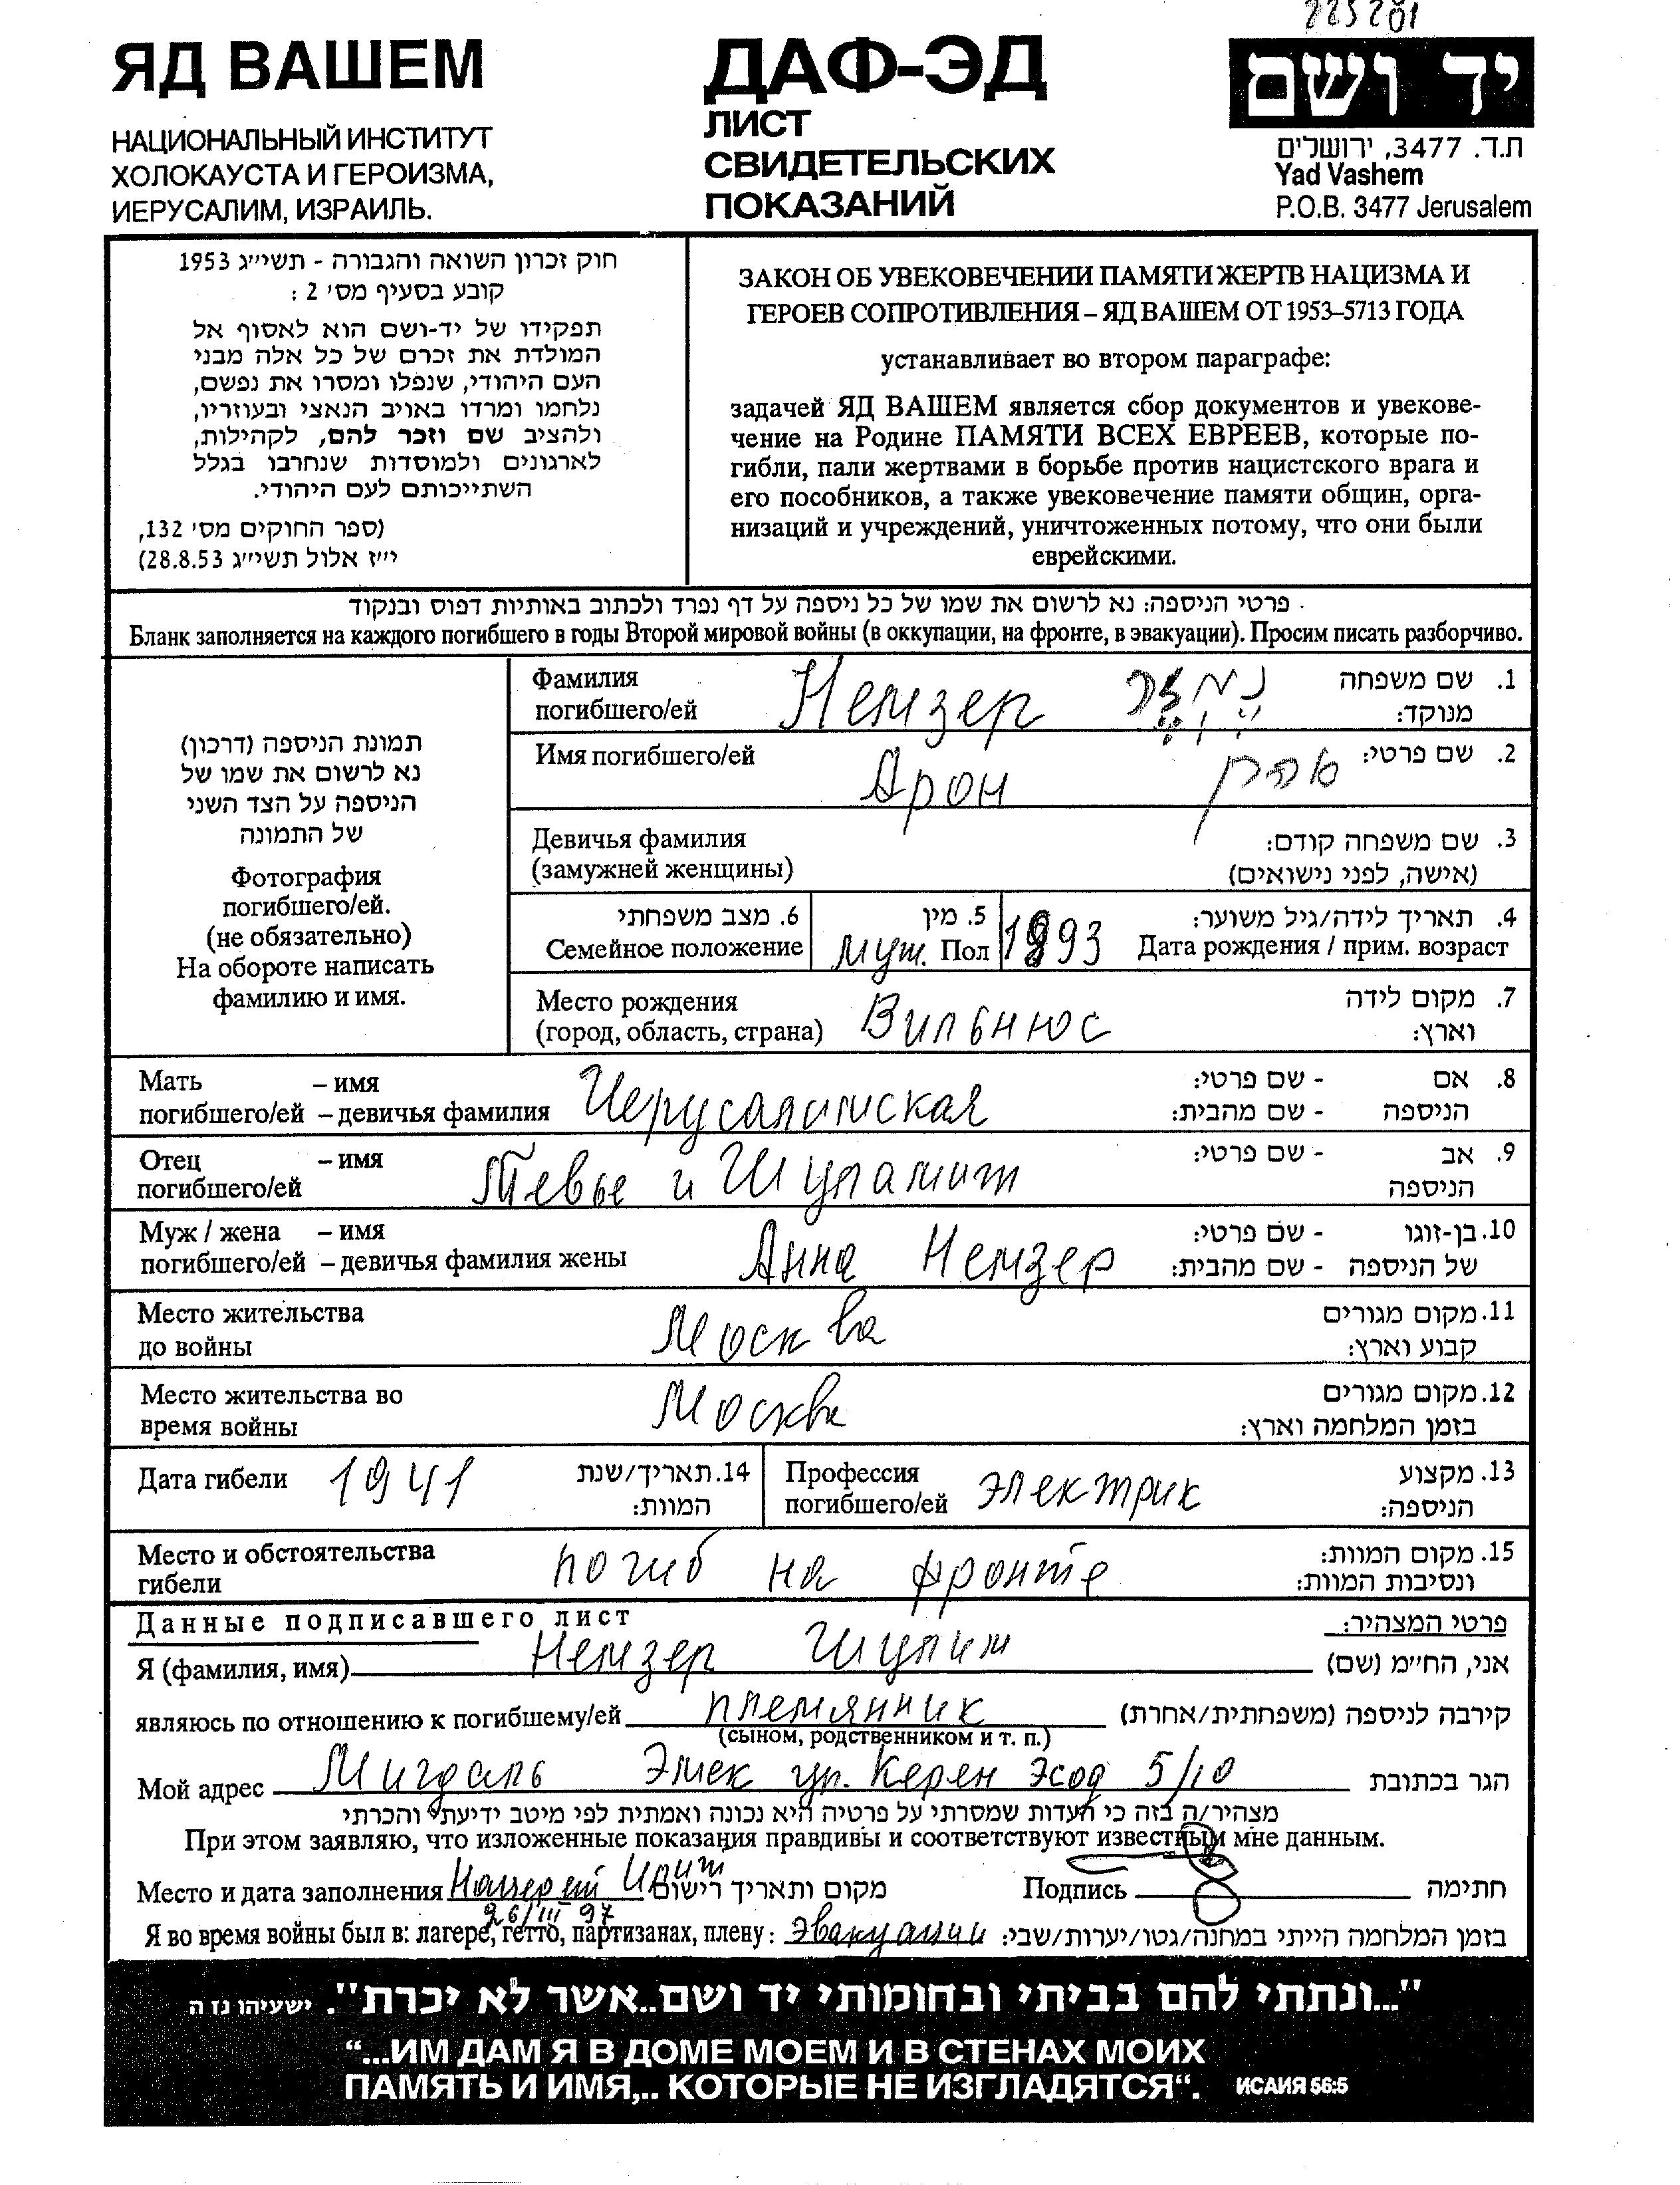 225201
ЯД ВАШЕМ
НАЦИОНАЛЬНЫЙ ИНСТИТУТ
ХОЛОКАУСТА И ГЕРОИЗМА,
ИЕРУСАЛИМ, ИЗРАИЛЬ.
ДАФ-ЭД
ЛИСТ
СВИДЕТЕЛЬСКИХ
ПОКАЗАНИЙ
יד ושם
ת.ד. 3477, ירושלים
Yad Vashem
P.O.B. 3477 Jerusalem
חוק זכרון השואה והגבורה - תשי״ג 1953
קובע בסעיף מס׳ 2 :
תפקידו של יד-ושם הוא לאסוף אל
המולדת את זכרם של כל אלה מבני
העם היהודי, שנפלו ומסרו את נפשם,
נלחמו ומרדו באויב הנאצי ובעוזריו,
ולהציב שם וזכר להם, לקהילות,
לארגונים ולמוסדות שנחרבו בגלל
השתייכותם לעם היהודי.
(ספר החוקים מס׳ 132,
י״ז אלול תשי״ג 28.8.53)
ЗАКОН ОБ УВЕКОВЕЧЕНИИ ПАМЯТИ ЖЕРТВ НАЦИЗМА И
ГЕРОЕВ СОПРОТИВЛЕНИЯ – ЯД ВАШЕМ ОТ 1953–5713 ГОДА
устанавливает во втором параграфе:
задачей ЯД ВАШЕМ является сбор документов и увекове-
чение на Родине ПАМЯТИ ВСЕХ ЕВРЕЕВ, которые по-
гибли, пали жертвами в борьбе против нацистского врага и
его пособников, а также увековечение памяти общин, орга-
низаций и учреждений, уничтоженных потому, что они были
еврейскими.
פרטי הניספה: נא לרשום את שמו של כל ניספה על דף נפרד ולכתוב באותיות דפוס ובנקוד
Бланк заполняется на каждого погибшего в годы Второй мировой войны (в оккупации, на фронте, в эвакуации). Просим писать разборчиво.
תמונת הניספה (דרכון)
נא לרשום את שמו של
הניספה על הצד השני
של התמונה
Фотография
погибшего/ей.
(не обязательно)
На обороте написать
фамилию и имя.
Фамилия
погибшего/ей Немзер נמזר
1. שם משפחה
מנוקד:
Имя погибшего/ей Арон אהרן 2. שם פרטי:
Девичья фамилия
(замужней женщины)
3. שם משפחה קודם:
(אישה, לפני נישואים)
6. מצב משפחתי
Семейное положение
5. מין
муж. Пол
1893
4. תאריך לידה/גיל משוער:
Дата рождения / прим. возраст
Место рождения
(город, область, страна) Вильнюс
7. מקום לידה
וארץ:
Мать – имя
погибшего/ей – девичья фамилия Иерусалимская
8. אם - שם פרטי:
הניספה - שם מהבית:
Отец – имя
погибшего/ей Тевье и Шуламит
9. אב - שם פרטי:
הניספה
Муж / жена – имя
погибшего/ей – девичья фамилия жены Анна Немзер
10. בן-זוגו - שם פרטי:
של הניספה - שם מהבית:
Место жительства
до войны Москва
11. מקום מגורים
קבוע וארץ:
Место жительства во
время войны Москва
12. מקום מגורים
בזמן המלחמה וארץ:
Дата гибели 1941
14. תאריך/שנת
המוות:
Профессия
погибшего/ей электрик
13. מקצוע
הניספה:
Место и обстоятельства
гибели погиб на фронте
15. מקום המוות:
ונסיבות המוות:
Данные подписавшего лист
פרטי המצהיר:
Я (фамилия, имя) Немзер Шулим אני, הח״מ (שם)
являюсь по отношению к погибшему/ей племянник קירבה לניספה (משפחתית/אחרת)
(сыном, родственником и т. п.)
Мой адрес Мигдаль Эмек ул. Керен Эсод 5/10 הגר בכתובת
מצהיר/ה בזה כי העדות שמסרתי על פרטיה היא נכונה ואמתית לפי מיטב ידיעתי והכרתי
При этом заявляю, что изложенные показания правдивы и соответствуют известным мне данным.
Место и дата заполнения Нацерет Илит מקום ותאריך רישום Подпись חתימה
26/III 97
Я во время войны был в: лагере, гетто, партизанах, плену: эвакуации בזמן המלחמה הייתי במחנה/גטו/יערות/שבי:
"...ונתתי להם בביתי ובחומותי יד ושם..אשר לא יכרת". ישעיהו נז ה
“...ИМ ДАМ Я В ДОМЕ МОЕМ И В СТЕНАХ МОИХ
ПАМЯТЬ И ИМЯ,.. КОТОРЫЕ НЕ ИЗГЛАДЯТСЯ“. ИСАИЯ 56:5